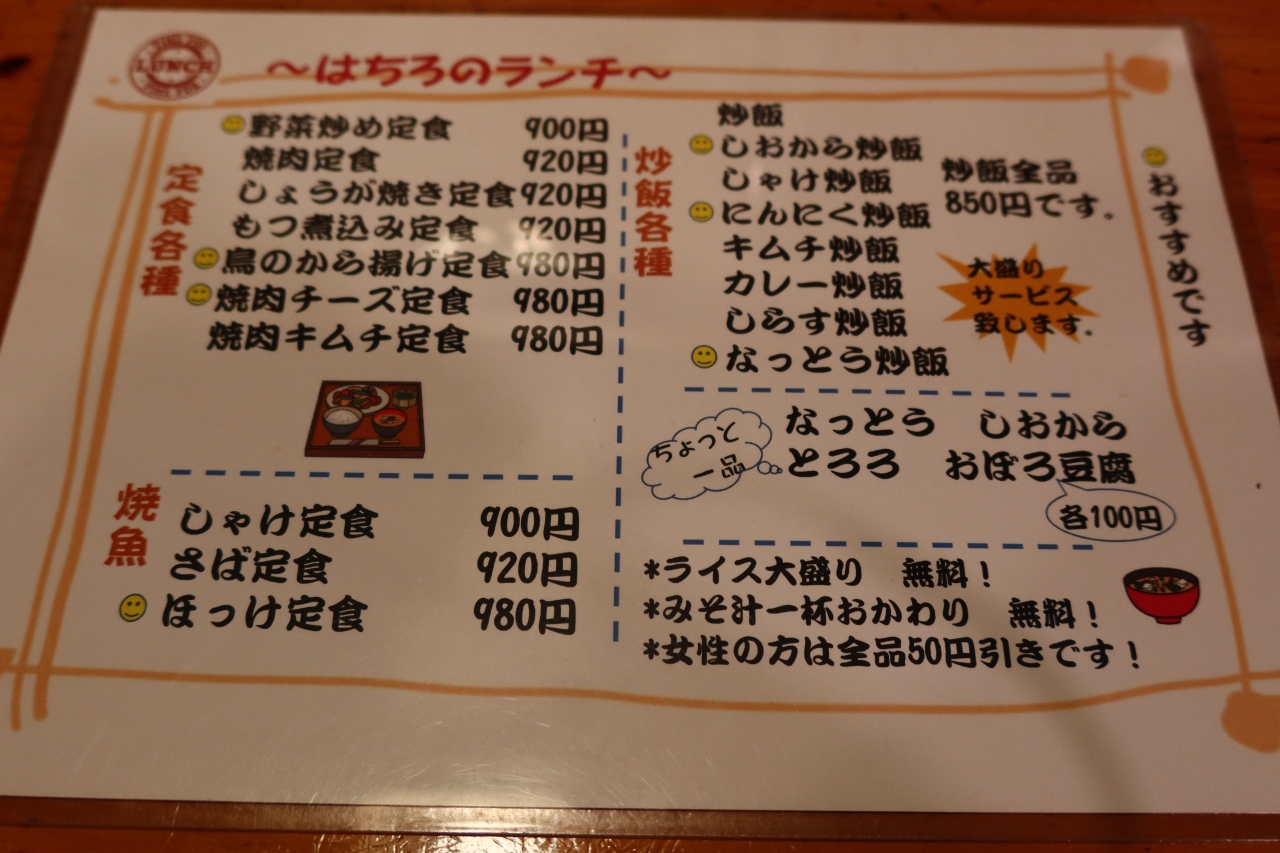 LUNCH
～はちろのランチ～
定食各種
野菜炒め定食 900円
焼肉定食 920円
しょうが焼き定食 920円
もつ煮込み定食 920円
鳥のから揚げ定食 980円
焼肉チーズ定食 980円
焼肉キムチ定食 980円
焼魚
しゃけ定食 900円
さば定食 920円
ほっけ定食 980円
炒飯各種
炒飯
しおから炒飯
しゃけ炒飯
にんにく炒飯
キムチ炒飯
カレー炒飯
しらす炒飯
なっとう炒飯
炒飯全品
850円です。
大盛り
サービス
致します。
おすすめです
ちょっと
一品
なっとう しおから
とろろ おぼろ豆腐
各100円
*ライス大盛り 無料！
*みそ汁一杯おかわり 無料！
*女性の方は全品50円引きです！